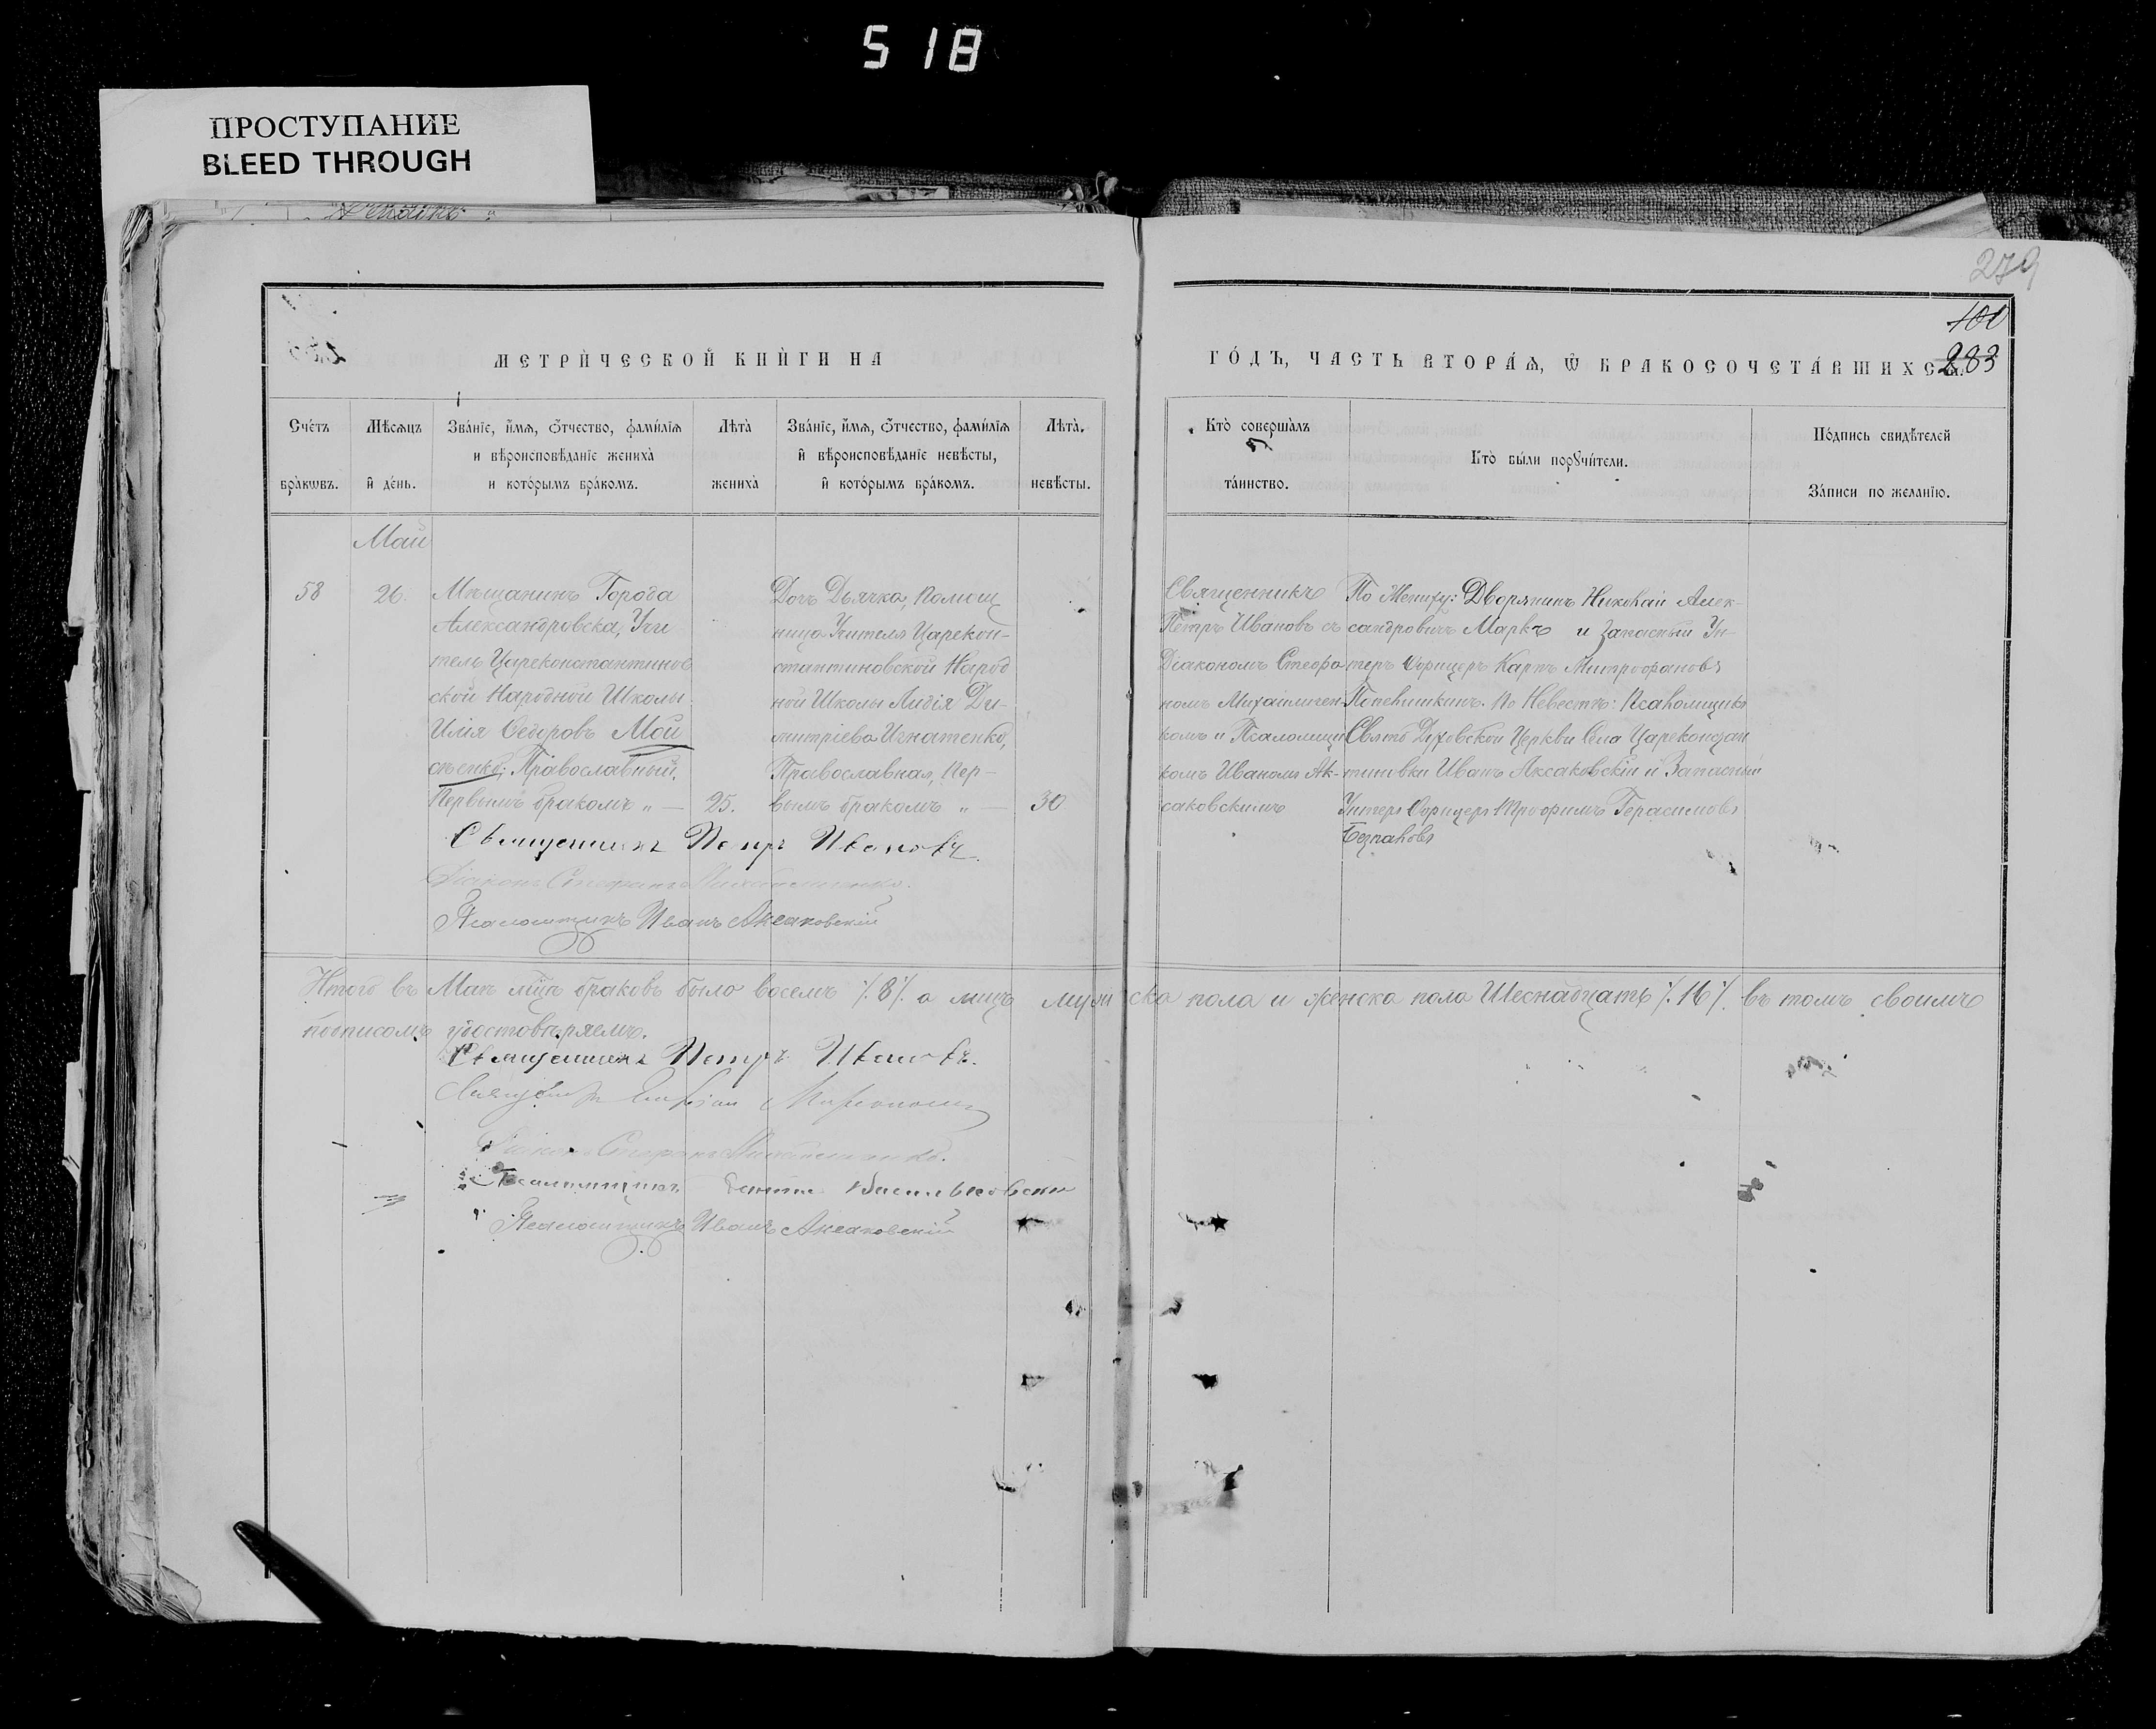 518
ПРОСТУПАНИЕ
BLEED THROUGH
279
101
283
МЕТРИ́ЧЕСКОЙ КНИ́ГИ НА
ГО́ДЪ, ЧАСТЬ ВТОРА́Ѧ, Ѿ БРАКОСОЧЕТА́ВШИХСѦ.
Сче́тъ бра́кѡвъ.
Мѣ́сѧцъ и҆ де́нь.
Зва́нїе, и҆́мѧ, ѻ҆́тчество, фами́лїѧ
и вѣроисповѣ́данїе жениха̀
и кото́рымъ бра́комъ.
Лѣ́та жениха̀
Зва́нїе, и҆́мѧ, ѻ҆́тчество, фами́лїѧ
и҆ вѣроисповѣ́данїе невѣ́сты,
и҆ кото́рымъ бра́комъ.
Лѣ́та. невѣ́сты.
Кто̀ соверша́лъ
та́инство.
Кто̀ бы́ли порꙋчи́тели.
По́дпись свидѣ́телей
За́писи по жела́нїю.
Май
58
26.
Мѣщанинъ Города
Александровска, Учи
тель Цареконстантинов
ской Народной Школы
Илія Ѳедоровъ Мой
сѣенко; Православный,
Первымъ бракомъ „ —
25.
Дочъ Дьячка, Помощ
ница Учителя Царекон-
стантиновской Народ
ной Школы Лидія Ди-
митріева Игнатенко,
Православная, Пер-
вымъ бракомъ „ —
30
Священникъ
Петръ Ивановъ съ
Діакономъ Стефа
номъ Михайличен
комъ и Псаломщи
комъ Иваномъ Ак-
саковскимъ
По Жениху: Дворянинъ Николай Алек-
сандровичъ Марк и Запасный Ун-
теръ Офицеръ Карпъ Митрофановъ
По Невестѣ: Псаломщикъ
Свято Духовской Церкви Села Цареконстан
тиновки Иванъ Аксаковскій и Запасный
Унтеръ Офицеръ Трофимъ Герасимовъ
Священникъ Петръ Ивановъ.
Діаконъ Стефанъ Михайличенко.
Псаломщикъ Иванъ Аксаковскій
Итого въ Маѣ мцѣ браковъ было восемъ ./.8./. а лицъ мужска пола и женска пола Шеснадцать ./.16./. въ томъ своимъ
подписомъ удостовѣряемъ.
Священникъ Петръ Ивановъ.
Священникъ
Діаконъ Стефанъ Михайличенко.
Псаломщикъ
Псаломщикъ Иванъ Аксаковскій